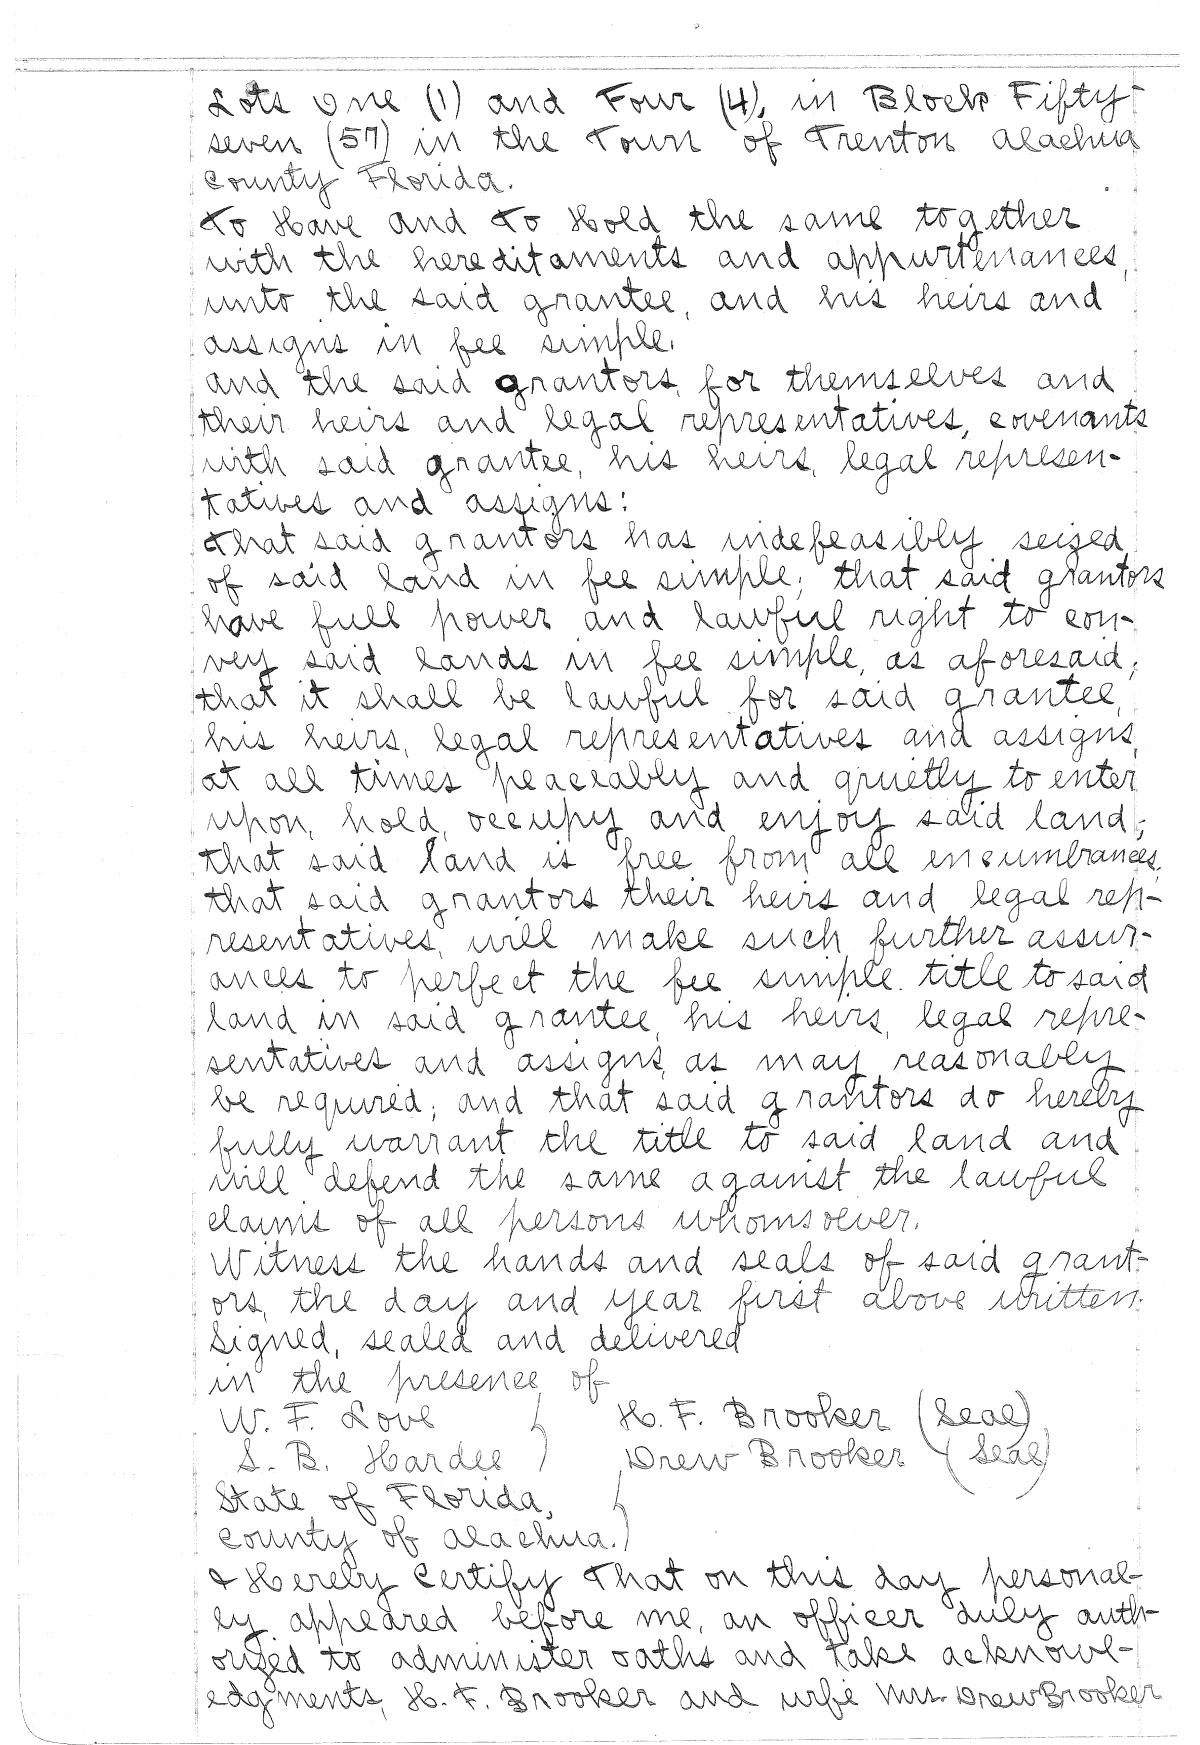 Lots One (1) and Four (4), in Block Fifty-
seven (57) in the Town of Trenton Alachua
County Florida.
To Have and To Hold the same together
with the hereditaments and appurtenances,
unto the said grantee, and his heirs and
assigns in fee simple.
And the said grantors, for themselves and
their heirs and legal representatives, covenants
with said grantee, his heirs, legal represen-
tatives and assigns:
That said grantors has indefeasibly seized
of said land in fee simple; that said grantors
have full power and lawful right to con-
vey said lands in fee simple, as aforesaid;
that it shall be lawful for said grantee,
his heirs, legal representatives and assigns,
at all times peaceably and quietly to enter
upon, hold, occupy and enjoy said land;
that said land is free from all encumbrances;
that said grantors their heirs and legal rep-
resentatives, will make such further assur-
ances to perfect the fee simple title to said
land in said grantee, his heirs, legal repre-
sentatives and assigns, as may reasonably
be required; and that said grantors do hereby
fully warrant the title to said land and
will defend the same against the lawful
claims of all persons whomsoever.
Witness the hands and seals of said grant-
ors, the day and year first above written.
Signed, sealed and delivered
in the presence of
W. F. Love ) H. F. Brooker (Seal)
S. B. Hardee ) Drew Brooker (Seal)
State of Florida, )
County of Alachua. )
I Hereby Certify That on this day personal-
ly appeared before me, an officer duly auth-
orized to administer oaths and take acknowl-
edgments, H. F. Brooker and wife Mrs. Drew Brooker